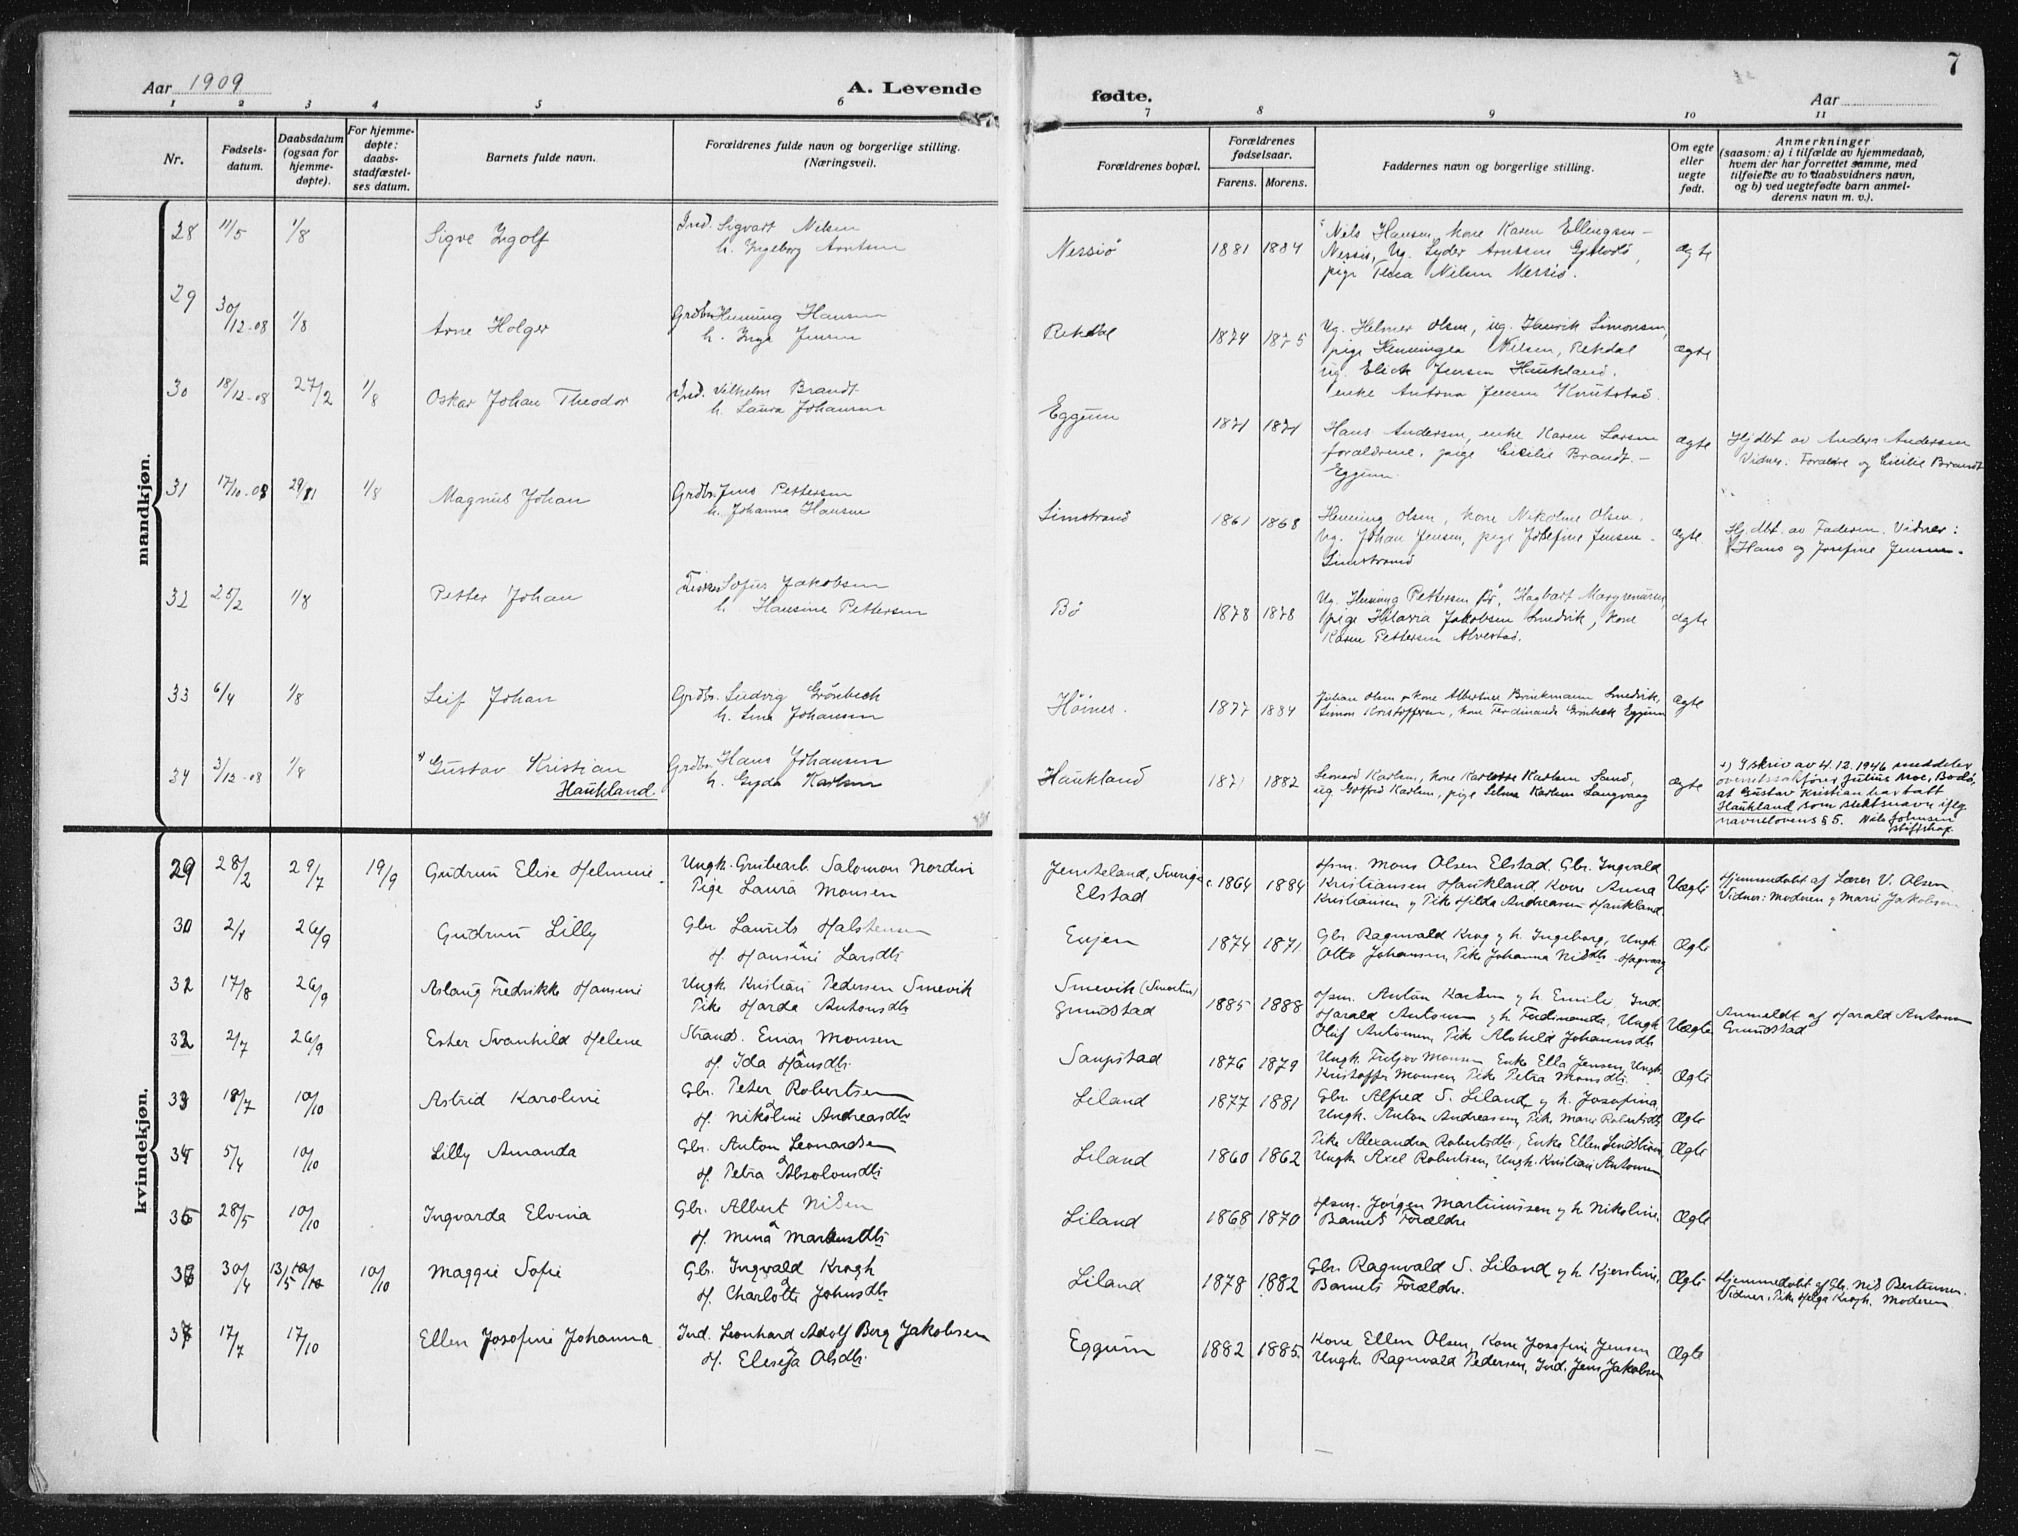 7
Aar 1909
A. Levende
fødte.
Aar
1 2 3 4 5 6 7 8 9 10 11
Nr.
Fødsels-
datum.
Daabsdatum
(ogsaa for
hjemme-
døpte).
For hjemme-
døpte:
daabs-
stadfæstel-
ses datum.
Barnets fulde navn.
Forældrenes fulde navn og borgerlige stilling.
(Næringsvei).
Forældrenes bopæl.
Forældrenes
fødselsaar.
Farens. Morens.
Faddernes navn og borgerlige stilling.
Om egte
eller
uegte
født.
Anmerkninger
(saasom: a) i tilfælde av hjemmedaab,
hvem der har forrettet samme, med
tilføielse av to daabsvidners navn,
og b) ved uegtefødte barn anmel-
derens navn m. v.).
mandkjøn.
28 11/5 1/8 Sigve Ingolf Ind. Sigvart Nilsen
h. Ingeborg Arntsen
Nessiø 1881 1884 Nels Hansen, kone Karen Ellingsen -
Nessiø, Ug. Lyder Arntsen
pige Thea Nilsen Nessiø.
Ægte
29 30/12-08 1/8 Arne Holger Grdbr. Henning Hansen
h. Inga Jensen
Rekdal 1874 1875 Ug. Helmer Olsen, ug. Henrik Simonsen,
pige Henningea Nilsen, Rekdal
ug. Elick Jensen Haukland.
enke Antona Jensen Knutstad.
Ægte
30 18/12-08 27/2 1/8 Oskar Johan Theodor Ind. Vilhelm Brandt
h. Laura Johansen
Eggum 1871 1871 Hans Andersen, enke Karen Larsen
forældrene, pige Cicilie Brandt. -
Eggum.
Ægte Hjdbt av Anders Andersen
Vidner: Foraldre og Cicilie Brandt
31 17/10-08 29/11 1/8 Magnus Johan Grdbr. Jens Pettersen
h. Johanna Hansen
Limstrand 1861 1868 Henning Olsen, kone Nikoline Olsen.
Ug. Johan Jensen, pige Josefine Jensen -
Limstrand
Ægte Hjdbt. av Faderen. Vidner:
Hans og Josefine Jensen.
32 25/2 1/8 Petter Johan Fisker Sofus Jakobsen
h. Hansine Pettersen
Bø 1878 1878 Ug. Henning Pettersen Bø, Hagbart
pige Hilaria Jakobsen Smedvik, kone
Karen Pettersen Alvestad.
Ægte
33 6/4 1/8 Leif Johan Grdbr. Ludvig Grönbech
h. Lina Johansen
Höines. 1877 1884 Julian Olsen, kone Albertine Brinkmann Smedvik,
Simon Kristoffersen, kone Ferdinanda Grönbech Eggum
Ægte
34 3/12-08 1/8 Gustav Kristian
Haukland. Grdbr. Hans Johansen
h. Gyda Karlsen
Haukland 1871 1882 Leonard Karlsen, kone Karlotte Karlsen Sand,
ug. Gotfred Karlsen, pige Selma Karlsen Langvaag
Ægte +) I skriv av 4.12.1946 meddeler
overrettssakfører Julius Moe, Bodø,
at Gustav Kristian har tatt
Haukland som slektsnavn iflg.
navnelovens § 5. Nils Johnsen
Stiftskap.
kvindekjøn.
29 28/2 29/7 19/9 Gudrun Elise Helmine Ungk. Grubearb. Salomon Nordin
Pige Laura Monsen
Jemteland, Sverige
Elstad c. 1864 1884 Hsm. Mons Olsen Elstad. Gbr. Ingvald
Kristiansen Haukland. Kone Anna
Kristiansen og Pike Hilda Andreasen Haukland.
Uægte Hjemmedøbt af Lærer V. Olsen.
Vidner: Moderen og Marie Jakobsen
30 2/8 26/9 Gudrun Lilly Gbr. Laurits Halstensen
H. Hansine Larsdtr
1874 1871 Gbr. Ragnvald Krog og h. Ingeborg, Ungk.
Otto Johansen, Pike Johanna Nilsdtr.
Ægte
31 17/8 26/9 Aslaug Fredrikke Hansine Ungk Kristian Pedersen Smevik
Pike Harda Antonsdtr
Smevik
Grundstad 1885 1888 Hsm. Anton Karlsen og h. Emilie, Ind.
Harald Antonsen og h. Ferdinanda, Ungk
Oluf Antonsen, Pike Alvhild Johannsdtr
Uægte Anmeldt af Harald Antonsen
Grundstad
32 2/7 26/9 Ester Svanhild Helene Strands. Einar Monsen
H. Ida Hansdtr.
Saupstad 1876 1879 Ungk Fritjov Monsen Enke Ella Jensen, Ungk.
Kristoffer Monsen, Pike Petra Monsdtr.
Ægte
33 18/7 10/10 Astrid Karoline Gbr. Peter Robertsen
H. Nikoline Andreasdtr
Liland 1877 1881 Gbr. Alfred S. Liland og h. Josefina,
Ungk. Anton Andreasen, Pike Marie Robertsdtr
Ægte
34 5/4 10/10 Lilly Amanda Gbr. Anton Leonardsen
H. Petra Absolonsdtr
Liland 1860 1862 Pike Alexandra Robertsdtr., Enke Ellen
Ungk. Axel Robertsen, Ungk. Kristian Antonsen
Ægte
35 28/5 10/10 Ingvarda Elvina Gbr. Albert Nilsen
H. Mina Markusdtr
Liland 1868 1870 Hsm. Jørgen Martinussen og h. Nikoline.
Barnets Forældre
Ægte
36 30/4 13/5 10/10 10/10 Maggie Sofie Gbr. Ingvald Krogh
H. Charlotte Johnsdtr
Liland 1878 1882 Gbr. Ragnvald S. Liland og h. Kjerstine,
Barnets Forældre.
Ægte Hjemmedøbt af Gbr. Nils Berntsen.
Vidner: Pike Helga Krogh. Moderen
37 17/7 17/10 Ellen Josefine Johanna Ind. Leonhard Adolf Berg Jakobsen
H. Elesea Olsdtr.
Eggum 1882 1885 Kone Ellen Olsen, Kone Josefine Jensen
Ungk. Ragnvald Pedersen, Ind. Jens Jakobsen
Ægte